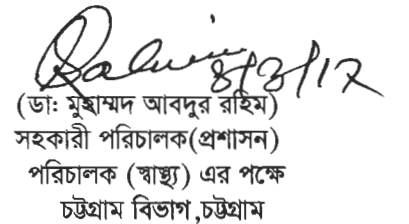 Rahim 8/3/17
(ডা: মুহাম্মদ আবদুর রহিম)
সহকারী পরিচালক(প্রশাসন)
পরিচালক (স্বাস্থ্য) এর পক্ষে
চট্টগ্রাম বিভাগ,চট্টগ্রাম